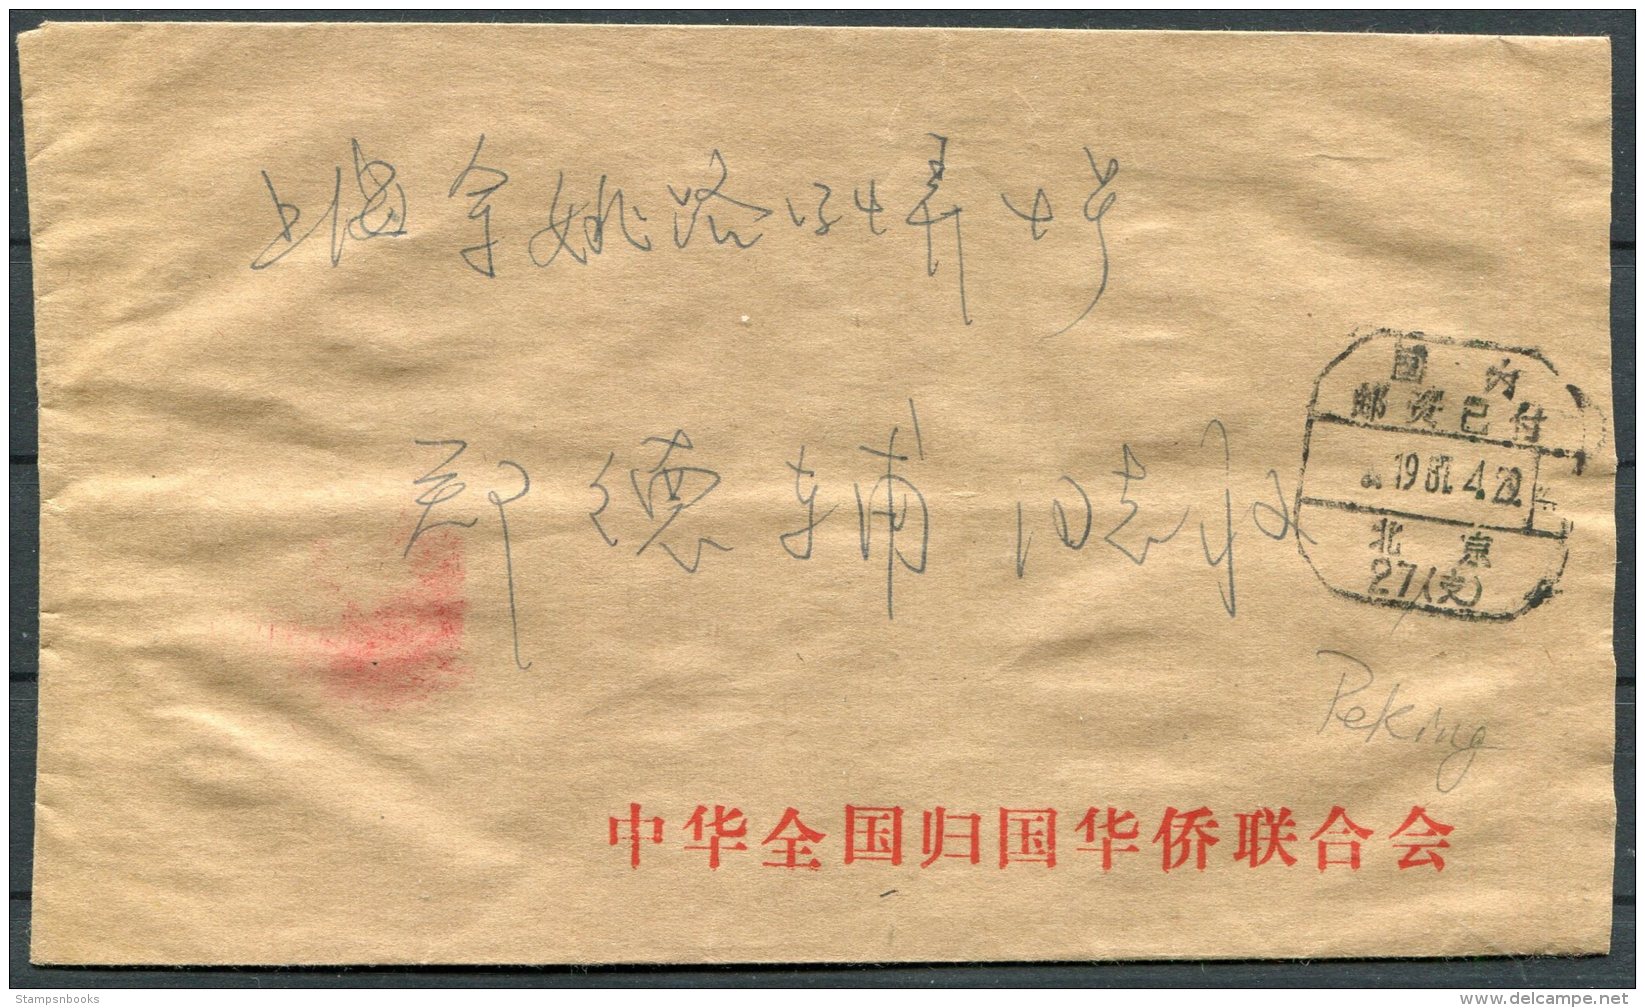 上海余姚路134弄4号
郑德辅 同志收
国内
邮资已付
1981.4.29
北京
27(支)
Peking
中华全国归国华侨联合会
Stampsnbooks
delcampe.net